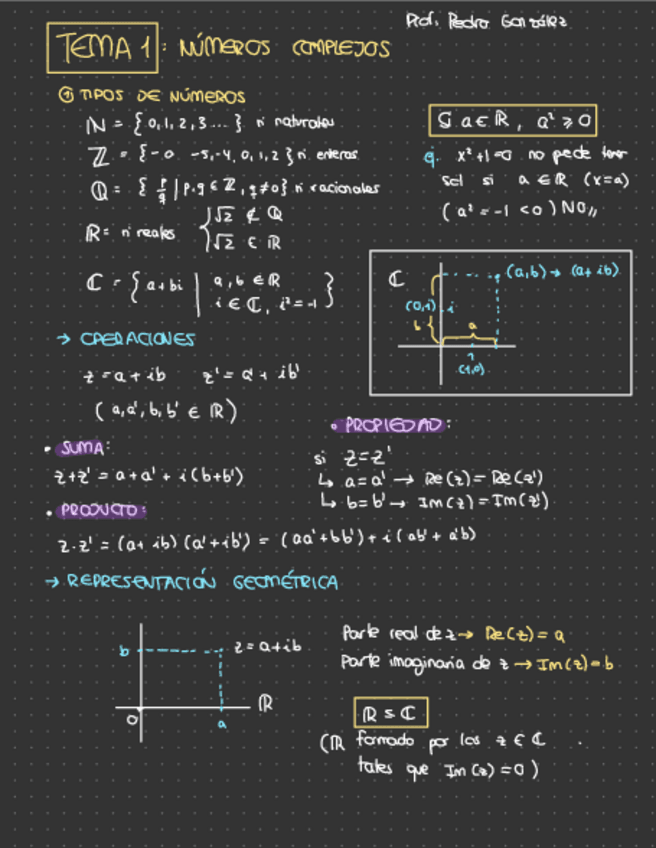 Prof. Pedro González
TEMA 1: NÚMEROS COMPLEJOS
① TIPOS DE NÚMEROS
ℕ = { 0, 1, 2, 3 ... } nº naturales
ℤ = { -∞ -5, -4, 0, 1, 2 } nº enteros
ℚ = { p/q | p, q ∈ ℤ, q ≠ 0 } nº racionales
ℝ = nº reales { √2 ∉ ℚ
√2 ∈ ℝ
ℂ = { a + bi | a, b ∈ ℝ
i ∈ ℂ, i² = -1 }
Si a ∈ ℝ, a² ≥ 0
ej. x² + 1 = 0 no puede tener
sol si a ∈ ℝ (x = a)
(a² = -1 < 0) NO,,
ℂ
(a, b) → (a + ib)
(0, 1) i
b
a
1
(1, 0)
→ OPERACIONES
z = a + ib z' = a' + ib'
(a, a', b, b' ∈ ℝ)
• SUMA:
z + z' = a + a' + i(b + b')
• PRODUCTO:
z · z' = (a + ib)(a' + ib') = (aa' + bb') + i(ab' + a'b)
• PROPIEDAD:
si z = z'
↳ a = a' → Re(z) = Re(z')
↳ b = b' → Im(z) = Im(z')
→ REPRESENTACIÓN GEOMÉTRICA
b
z = a + ib
ℝ
0
a
Parte real de z → Re(z) = a
Parte imaginaria de z → Im(z) = b
ℝ ≤ ℂ
(ℝ formado por los z ∈ ℂ
tales que Im(z) = 0)